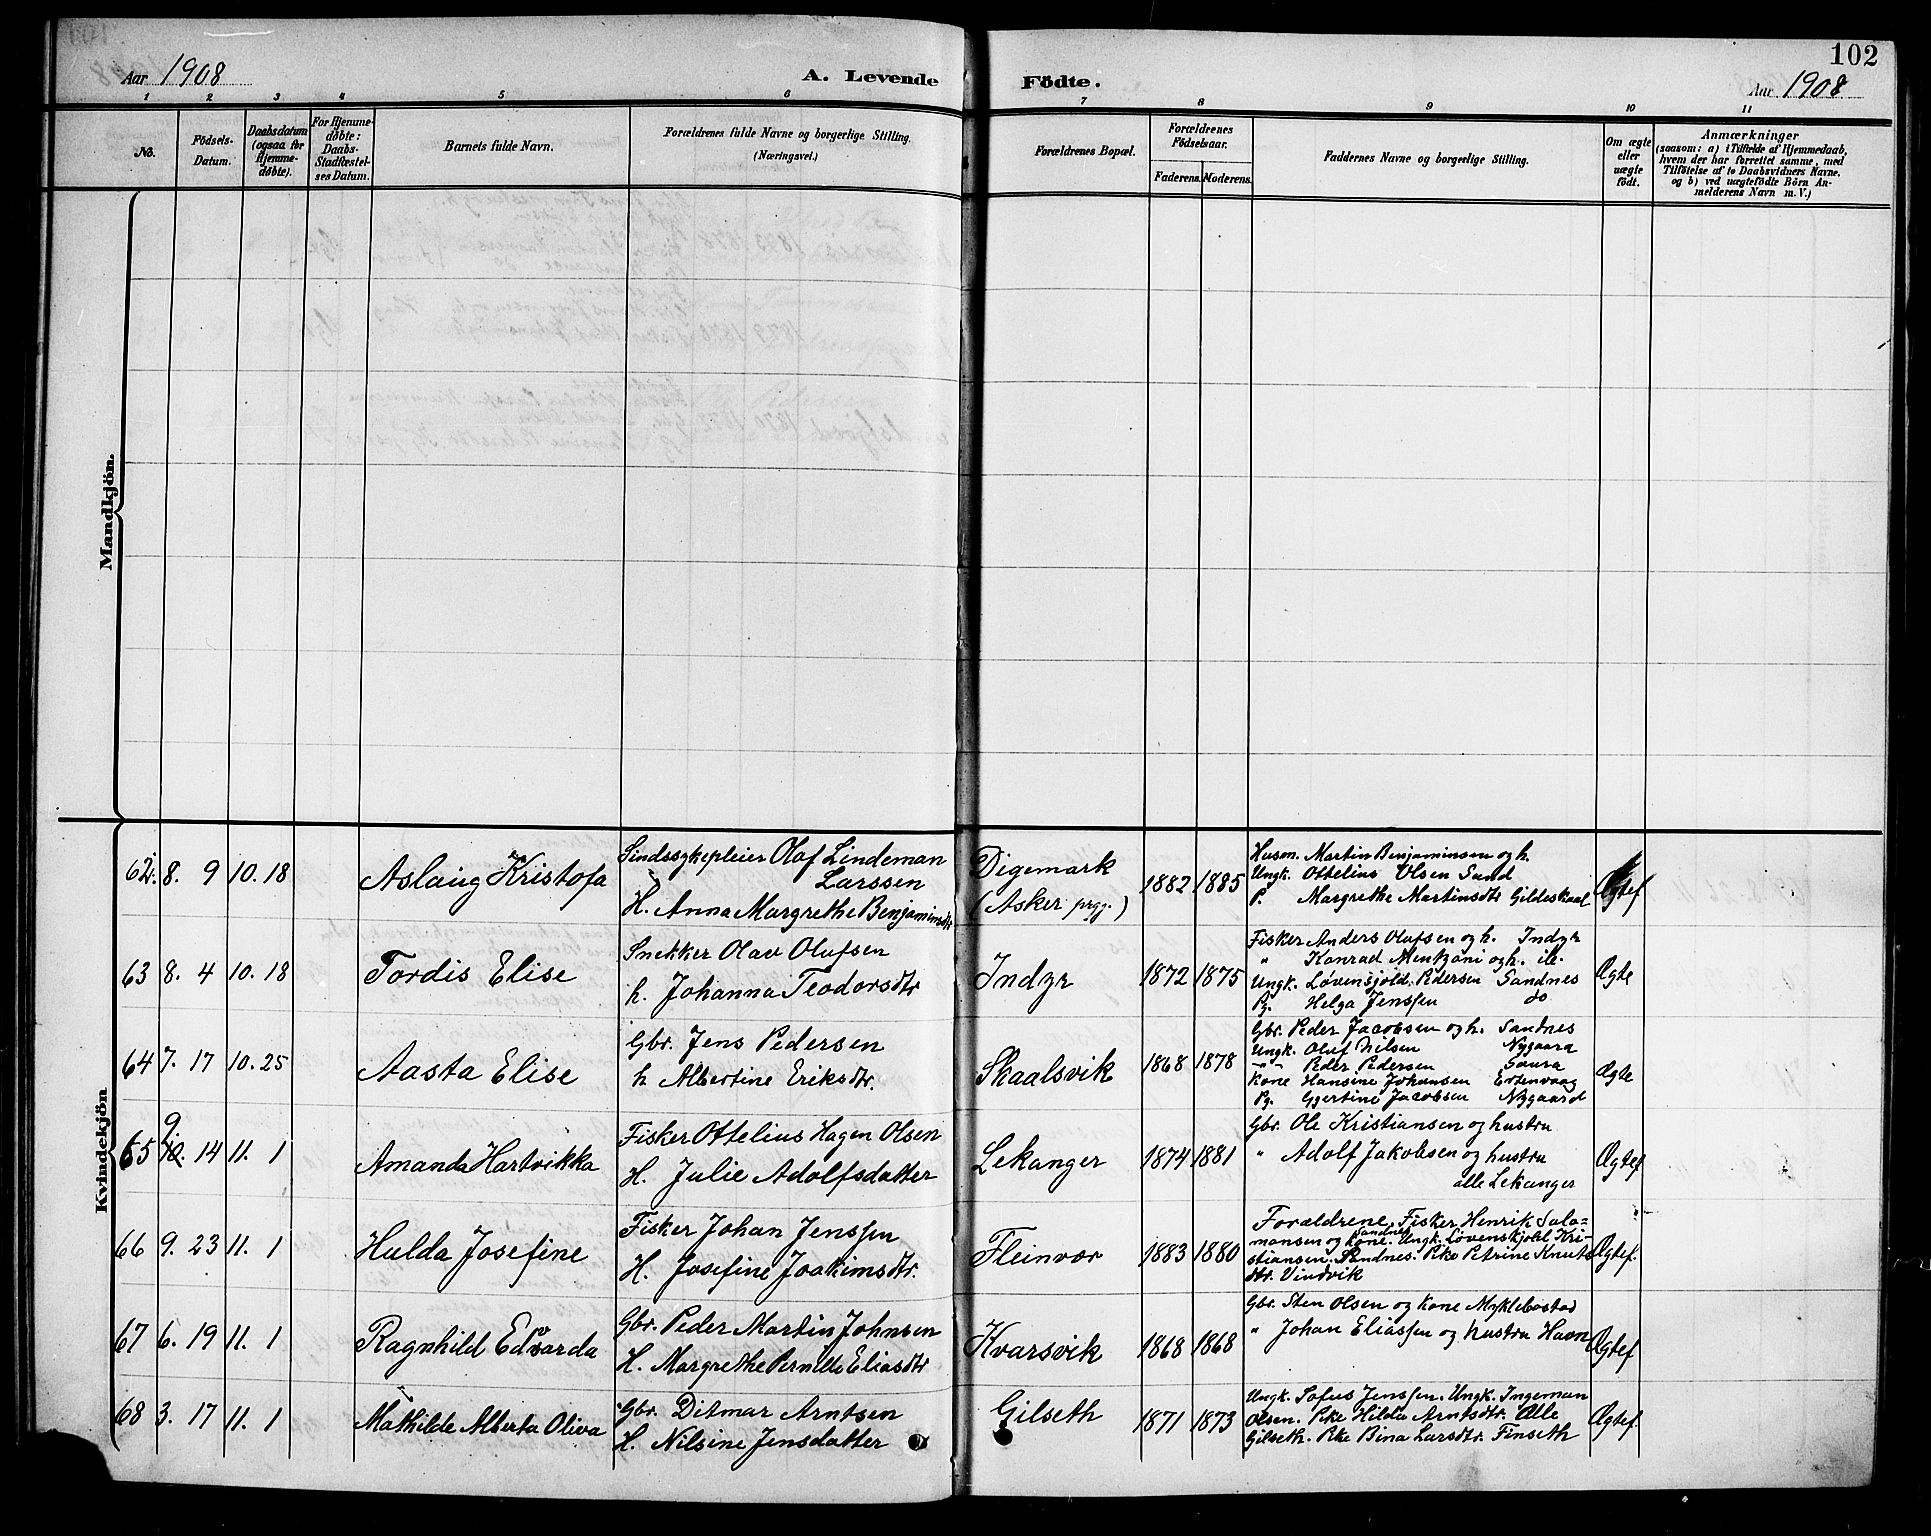 Aar 1908
A. Levende
Födte.
Aar 1908
102
1 2 3 4 5 6 7 8 9 10 11
No.
Födsels-
Datum.
Daabsdatum
(ogsaa for
Hjemme-
døbte).
For Hjemme-
døbte:
Daabs-
Stadfæstel-
ses Datum.
Barnets fulde Navn.
Forældrenes fulde Navne og borgerlige Stilling.
(Næringsvei.)
Forældrenes Bopæl.
Forældrenes
Födselsaar.
Faderens. Moderens.
Faddernes Navne og borgerlige Stilling.
Om ægte
eller
uægte
födt.
Anmærkninger
(saasom: a) i Tilfælde af Hjemmedaab,
hvem der har forrettet samme, med
Tilföielse af to Daabsvidners Navne.
og b) ved uægtefödte Börn An-
melderens Navn m. V.)
Mandkjön.
Kvindekjön
62. 8. 9 10. 18
Aslaug Kristofa
Sindssykepleier Olaf Lindeman
Larssen
H. Anna Margrethe Benjaminsdtr
Digemark
(Asker prgj.)
1882 1885
Husm. Martin Benjaminsen og h.
Ungk. Ottelius Olsen Sund
P. Margrethe Martinsdtr Gildeskaal
Ægtef
63 8. 4 10. 18
Tordis Elise
Snekker Olav Olufsen
h. Johanna Teodorsdtr
Indyr
1872 1875
Fisker Anders Olufsen og h. Indyr
" Konrad Mentzoni og h. ib.
Ungk. Løvenskjold Pedersen Sandnes
Pg. Helga Jenssen do
Ægte
64 7. 17 10. 25
Aasta Elise
Gbr. Jens Pedersen
h Albertine Eriksdtr.
Skaalsvik
1868 1878
Gbr. Peder Jacobsen og h. Sandnes
Ungk. Oluf Nilsen Nygaard
-"- Peder Pedersen Saura
Kone Hansine Johansen Ertenvaag
Pg. Gjertine Jacobsen Nygaard
Ægte
65 9 10. 14 11. 1
Amanda Hartvikka
Fisker Ottelius Hagen Olsen
H. Julie Adolfsdatter
Lekanger
1874 1881
Gbr. Ole Kristiansen og hustru
" Adolf Jakobsen og hustru
alle Lekanger
Ægtef
66 9. 23 11. 1
Hulda Josefine
Fisker Johan Jenssen
H. Josefine Joakimsdtr.
Fleinvær
1883 1880
Forældrene. Fisker Henrik Salo=
mansen og kone. Sandnes Ungk. Løvenskjold Kri-
stiansen, Sandnes. Pke Petrine Knuts
dtr. Vindvik
Ægtef.
67 6. 19 11. 1
Ragnhild Edvarda
Gbr. Peder Martin Johnsen
H. Margrethe Pernille Eliasdtr
Kvarsvik
1868 1868
Gbr. Sten Olsen og kone Myklebostad
" Johan Eliassen og hustru Havn
Ægtef
68 3. 17 11. 1
Mathilde Alberta Oliva
Gbr. Ditmar Arntsen
H. Nilsine Jensdatter
Gilseth
1871 1873
Ungk. Sofus Jenssen. Ungk. Ingeman
Olsen. Pke Hilda Arntsdtr. Alle
Gilseth. Pke Bina Larsdtr. Finseth
Ægtef.